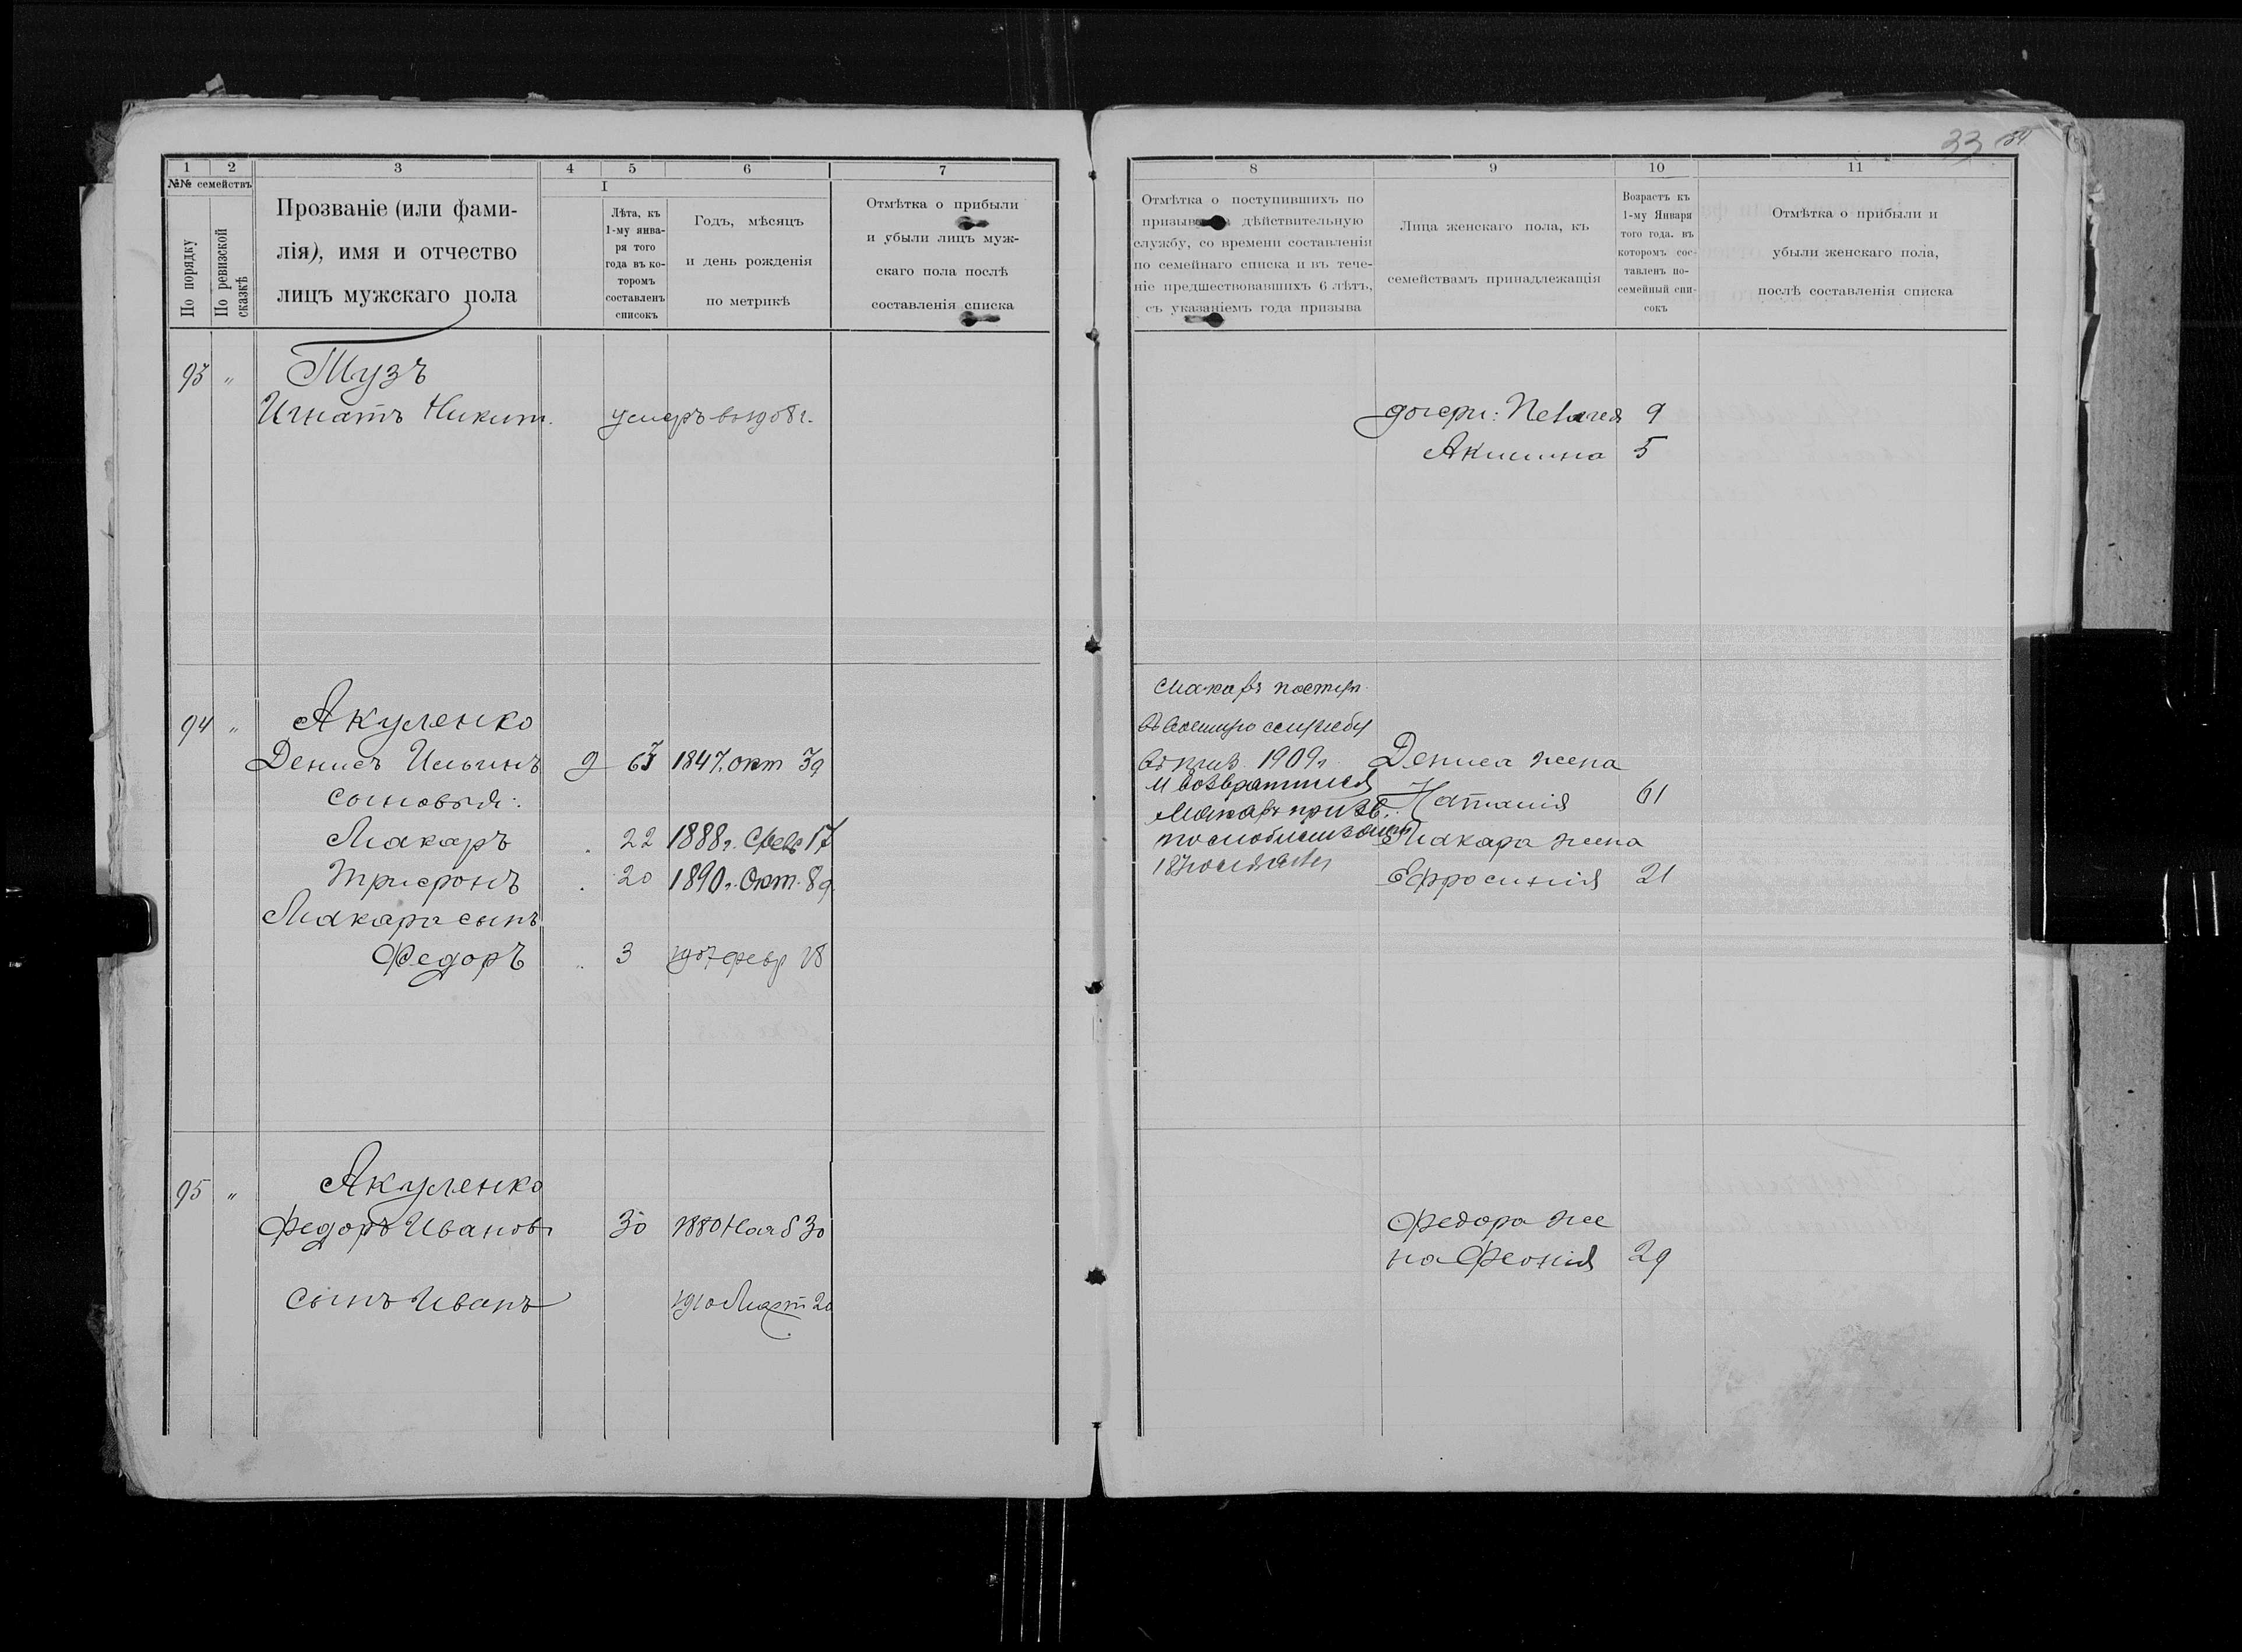 33 34
1 2 3 4 5 6 7
№№ семействъ
По порядку
По ревизской сказкѣ
Прозваніе (или фами-
лія), имя и отчество
лицъ мужскаго пола
I
Лѣта, къ
1-му янва-
ря того
года въ ко-
торомъ
составленъ
списокъ
Годъ, мѣсяцъ
и день рожденія
по метрикѣ
Отмѣтка о прибыли
и убыли лицъ муж-
скаго пола послѣ
составленія списка
93 " Тузъ
Игнатъ Никит. умеръ въ 1908 г.
94 " Акуленко
Денисъ Ильинъ 63 1847. окт
сыновья:
Макаръ 22 1888 г. Февр 17
Трифонъ 20 1890 г. Окт. 8
Макара сынъ
Федоръ 3 1907 февр 18
95 " Акуленко
Федоръ Иванов 30 1880 Нояб 30
сынъ Иванъ 1910 Март 20
8 9 10 11
Отмѣтка о поступившихъ по
призыв дѣйствительную
службу, со времени составленія
по семейнаго списка и въ тече-
ніе предшествовавшихъ 6 лѣтъ,
съ указаніемъ года призыва
Лица женскаго пола, къ
семействамъ принадлежащія
Возрастъ къ
1-му Января
того года. въ
которомъ сос-
тавленъ по-
семейный спи-
сокъ
Отмѣтка о прибыли и
убыли женскаго пола,
послѣ составленія списка
дочери: Пелагея 9
Акилина 5
Макаръ поступ.
въ военную службу
въ приз 1909 г
и возвратился
Макаръ призв.
по мобилизации
18 июля
Дениса жена
Наталія 61
Макара жена
Ефросинія 21
Федора же
на Феонія 29